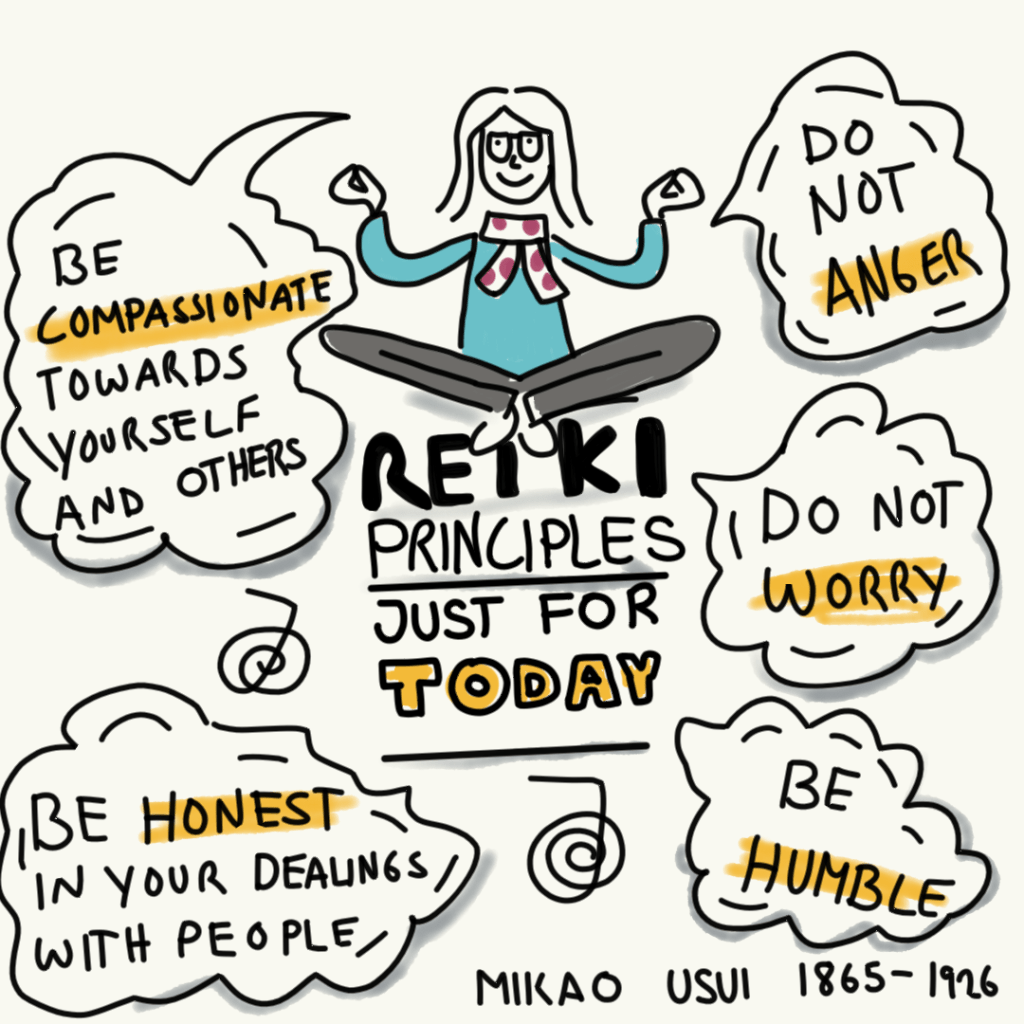 BE
COMPASSIONATE
TOWARDS
YOURSELF
AND OTHERS
DO
NOT
ANGER
REIKI
PRINCIPLES
JUST FOR
TODAY
DO NOT
WORRY
BE HONEST
IN YOUR DEALINGS
WITH PEOPLE
BE
HUMBLE
MIKAO USUI 1865-1926